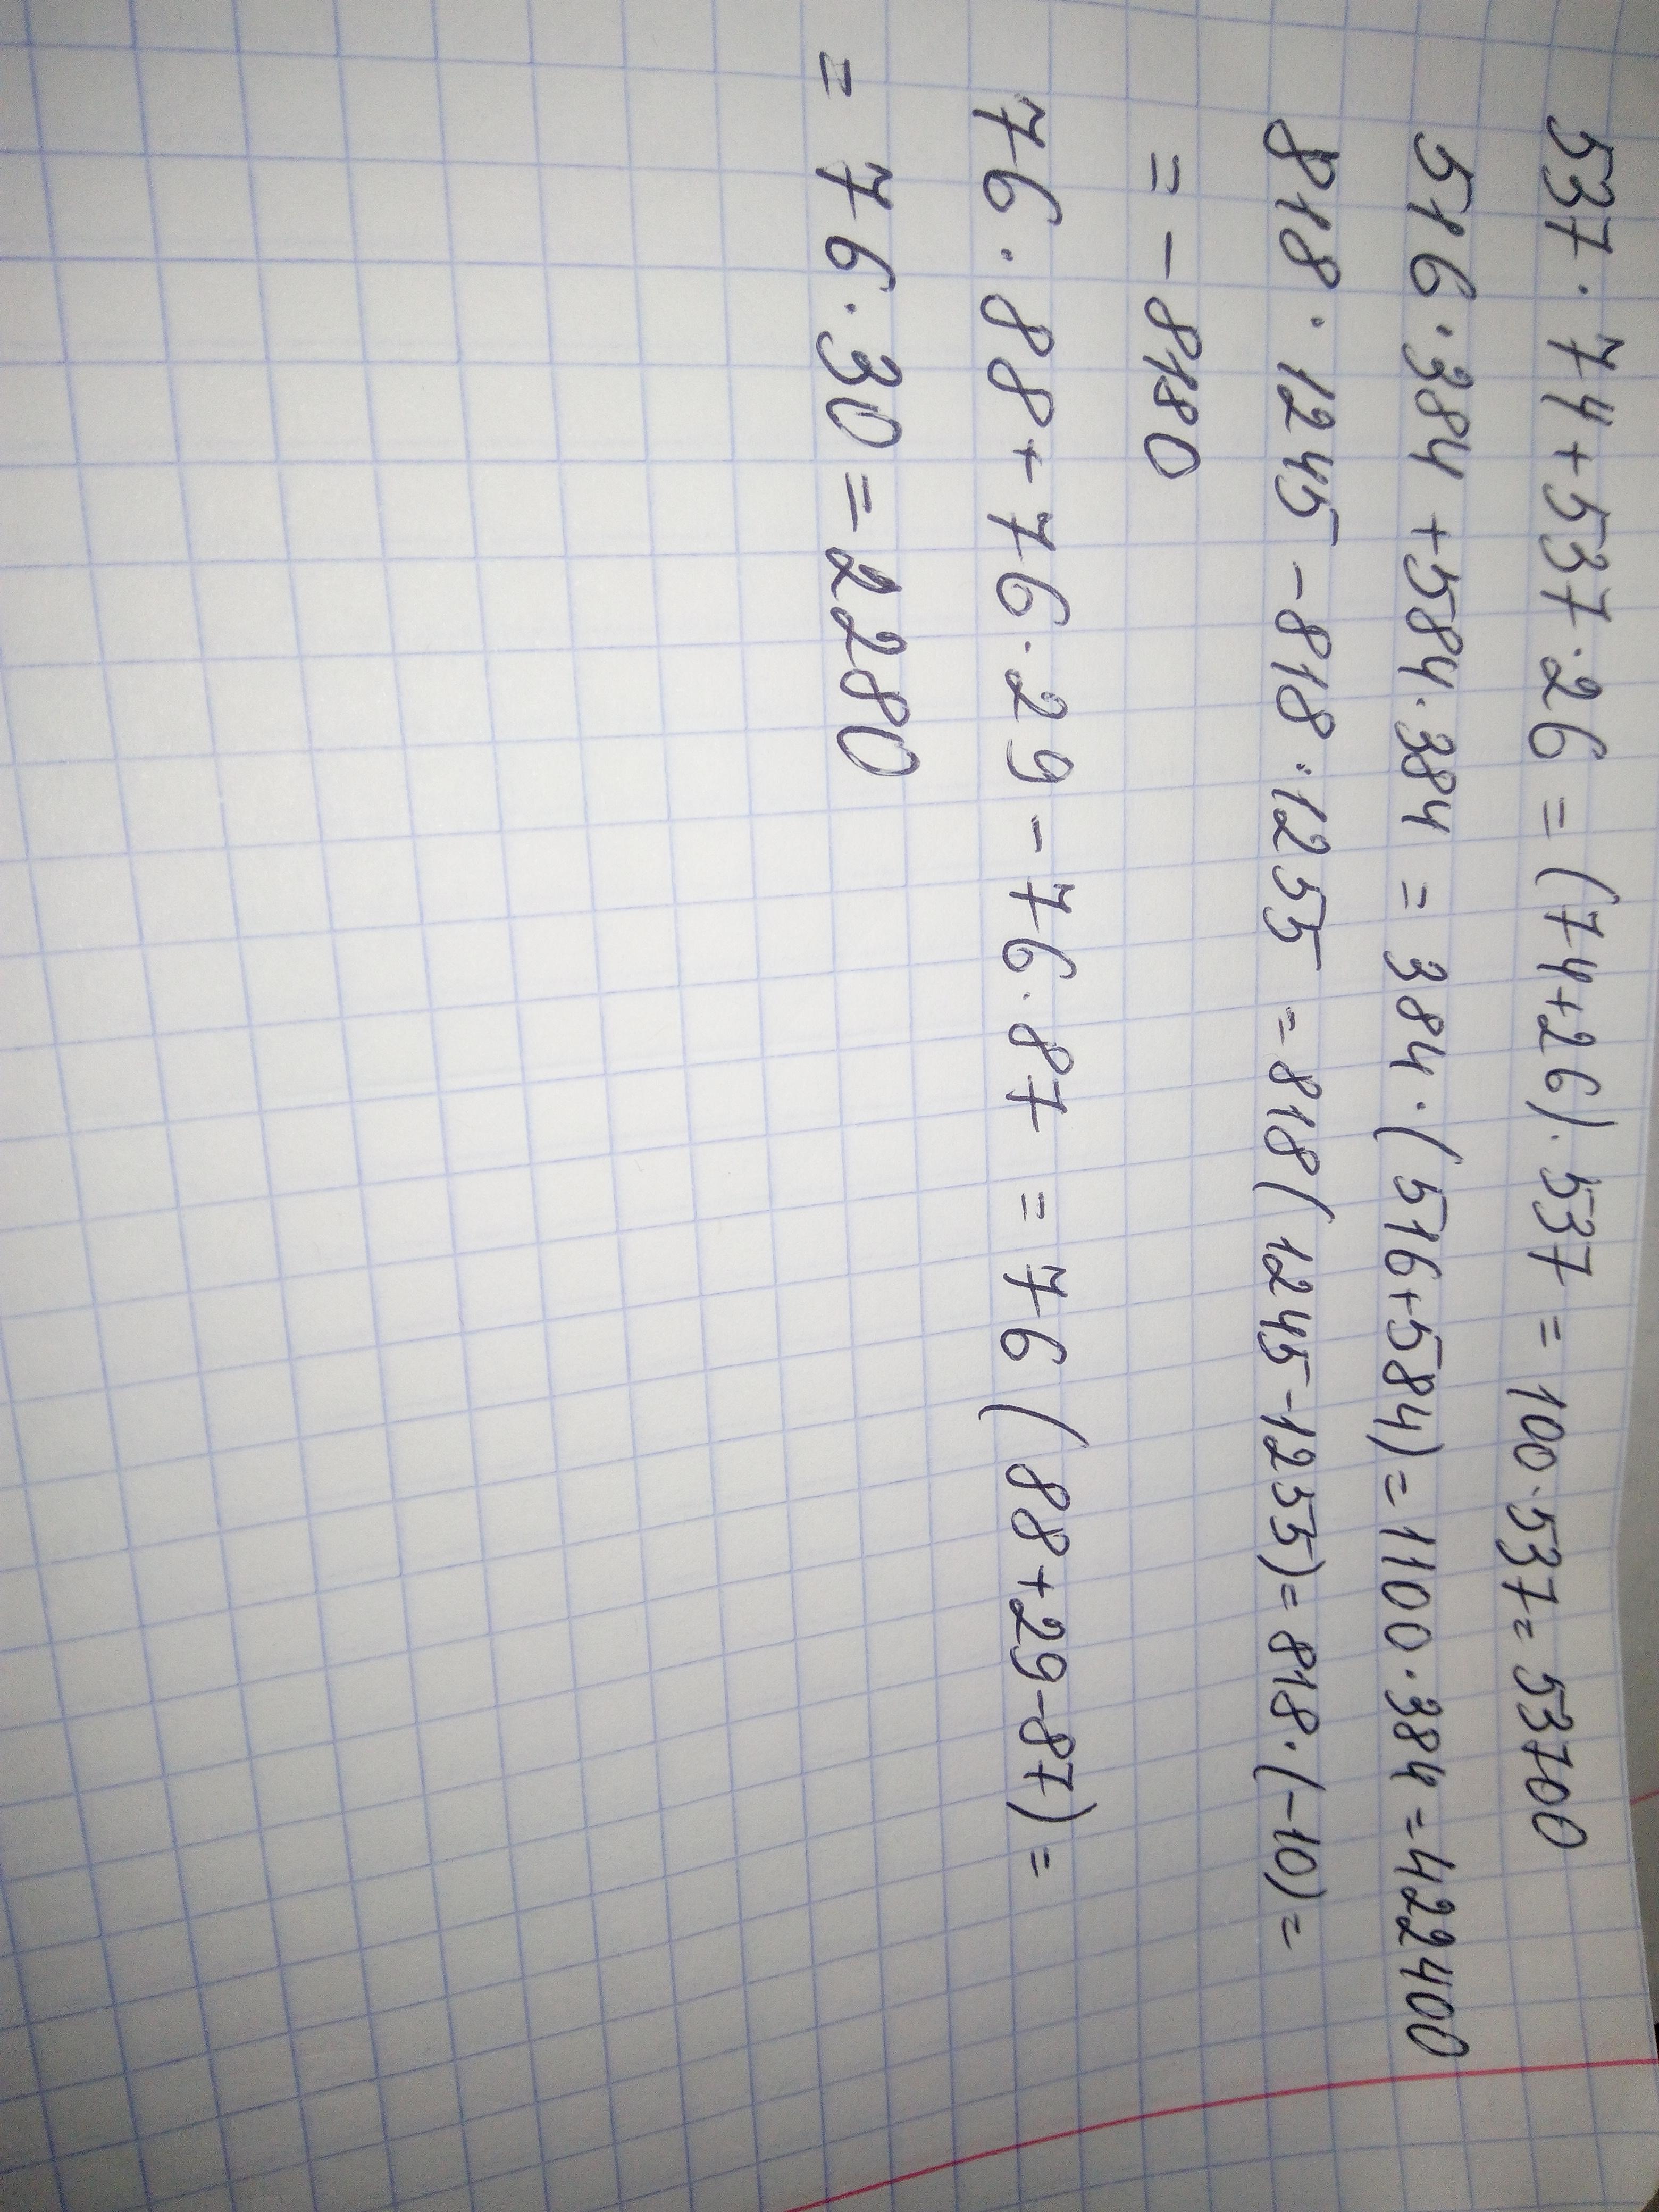 537·74+537·26=(74+26)·537=100·537=53700
516·384+584·384=384·(516+584)=1100·384=422400
818·1245-818·1255=818(1245-1255)=818·(-10)=
=-8180
76·88+76·29-76·87=76(88+29-87)=
=76·30=2280